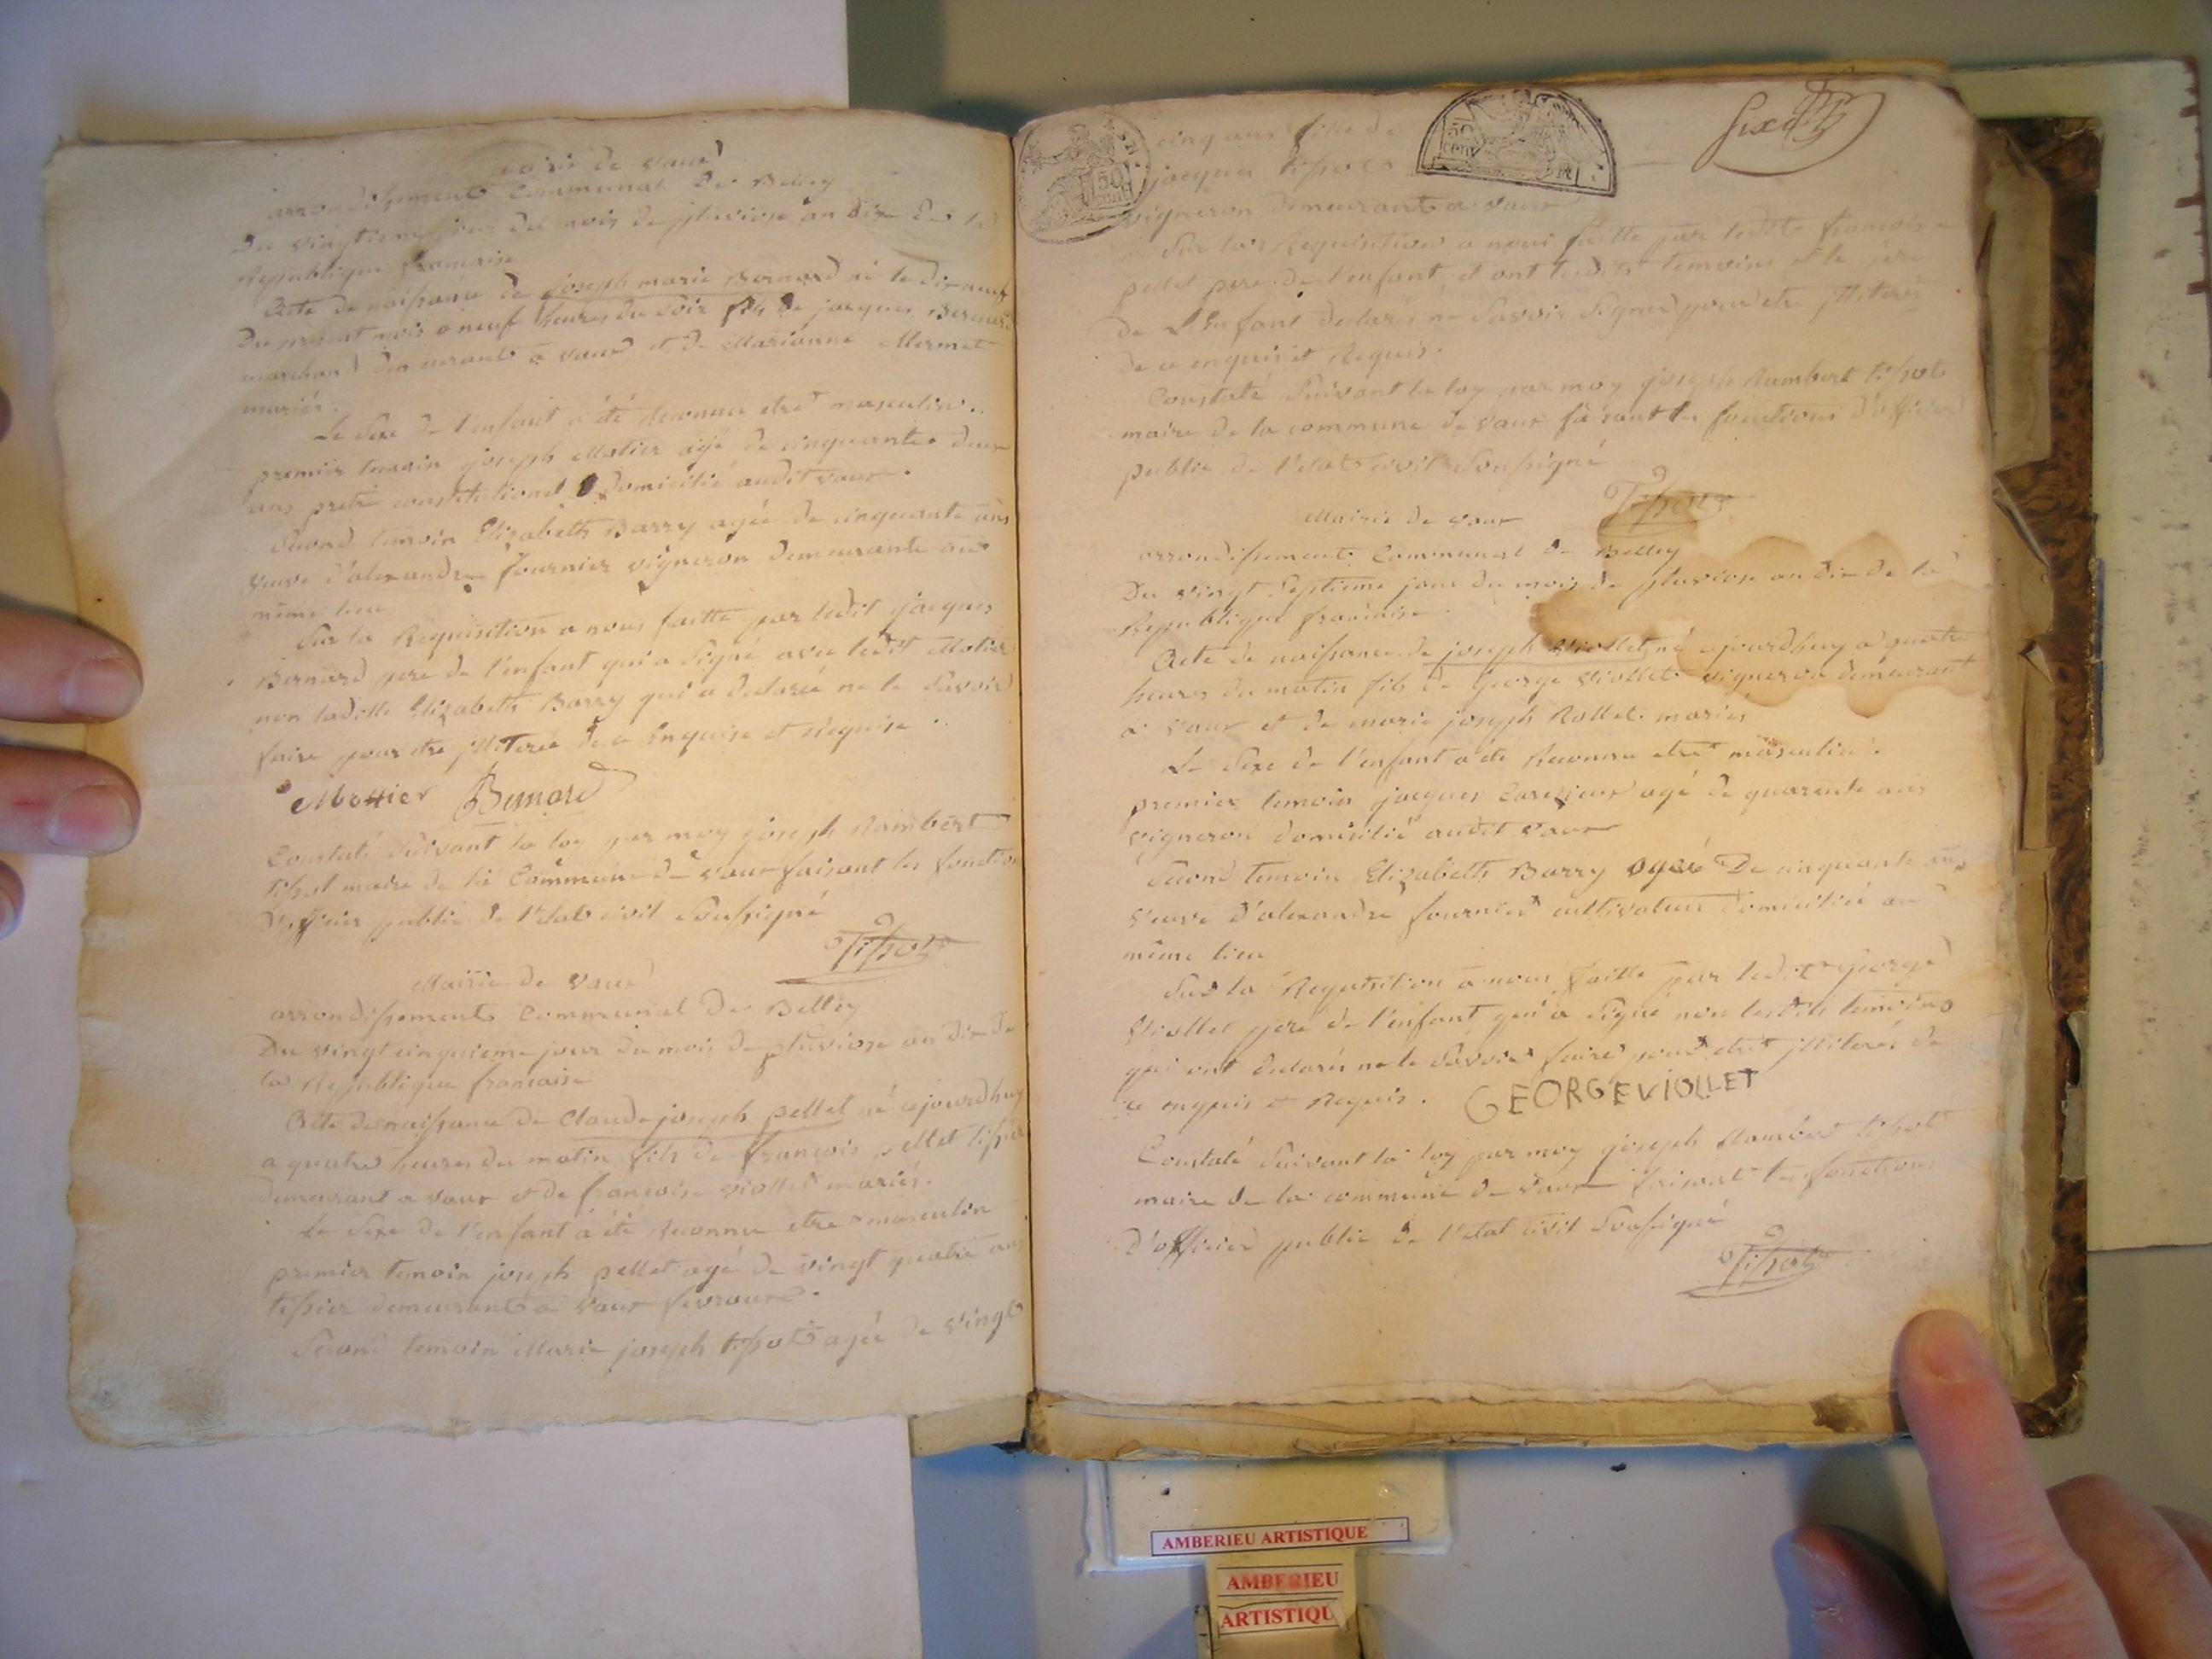 mairie de vaux
arrondissement Communal de Belley
Du vingtieme jour du mois de pluviose an dix de la
Republique francaise
Acte de naissance de joseph marie Bernard né le dix neuf
Du present mois a neuf heures du soir fils de jacques Bernard
marchand demeurant a vaux et de Marianne Mermet
mariés.
Le sexe de l'enfant a été Reconnu etre masculin..
premier temoin joseph Motier agé de cinquante deux
ans pretre constitutionel domicilié audit vaux.
Second temoin Elizabeth Barry agée de cinquante ans
veuve d'alexandre fournier vigneron demeurante au
même lieu
Sur la Requisition a nous faitte par ledit jacques
Bernard pere de l'enfant qui a signé avec ledit Motier
non laditte Elizabeth Barry qui a declaré ne le savoir
faire pour etre illiterée de ce Enquise et Requise ..
Mottier Bernard
Constaté suivant la loy par moy joseph Rambert
tissot maire de la Commune de vaux faisant les fonctions
D'officier public de l'etat civil soussigné
Tissot
Mairie de vaux
arrondissement Communal de Belley
Du vingt cinquieme jour du mois de pluviose an dix de
la Republique francaise
Acte de naissance de Claude joseph pellet né cejourdhuy
a quatre heures du matin fils de françois pellet tissier
demeurant a vaux et de francoise viollet mariés.
Le sexe de l'enfant a été Reconnu etre masculin
premier temoin joseph pellet agé de vingt quatre ans
tissier demeurant a vaux fevroux.
Second temoin Marie joseph tissot agée de vingt
50 cent
50 cent R.
cinq ans fille de
jacques tissot
vigneron demeurant a vaux
Sur la Requisition a nous faitte par ledit francois
pellet pere de l'enfant, et ont lesdits temoins et le pere
de L'Enfant declaré ne savoir signer pour etre illiterés
de ce enquis et Requis.
Constaté suivant la loy par moy joseph Rambert tissot
maire de la commune de vaux faisant les fonctions d'officier
public de l'etat civil soussigné
Tissot
Mairie de vaux
arrondissement Communal de Belley
Du vingt septieme jour du mois de pluviose an dix de la
Republique francaise.
Acte de naissance de joseph viollet né cejourdhuy a quatre
heures du matin fils de George viollet vigneron demeurant
a vaux et de marie joseph Rollet mariés
Le sexe de l'enfant a été Reconnu etre masculin.
premier temoin jacques agé de quarente ans
vigneron domicilié audit vaux
Second temoin Elizabeth Barry agée De cinquante ans
veuve d'alexandre fournier cultivateur domiciliée au
même lieu
Sur la Requisition a nous faitte par ledit George
Viollet pere de l'enfant qui a signé non lesdits temoins
qui ont declarés ne le savoir faire pour etre illiterés de
ce enquis et Requis. GEORGEVIOLLET
Constaté suivant la loy par moy joseph Rambert tissot
maire de la commune de vaux faisant les fonctions
d'officier public de l'etat civil soussigné
Tissot
AMBERIEU ARTISTIQUE
AMBERIEU
ARTISTIQU